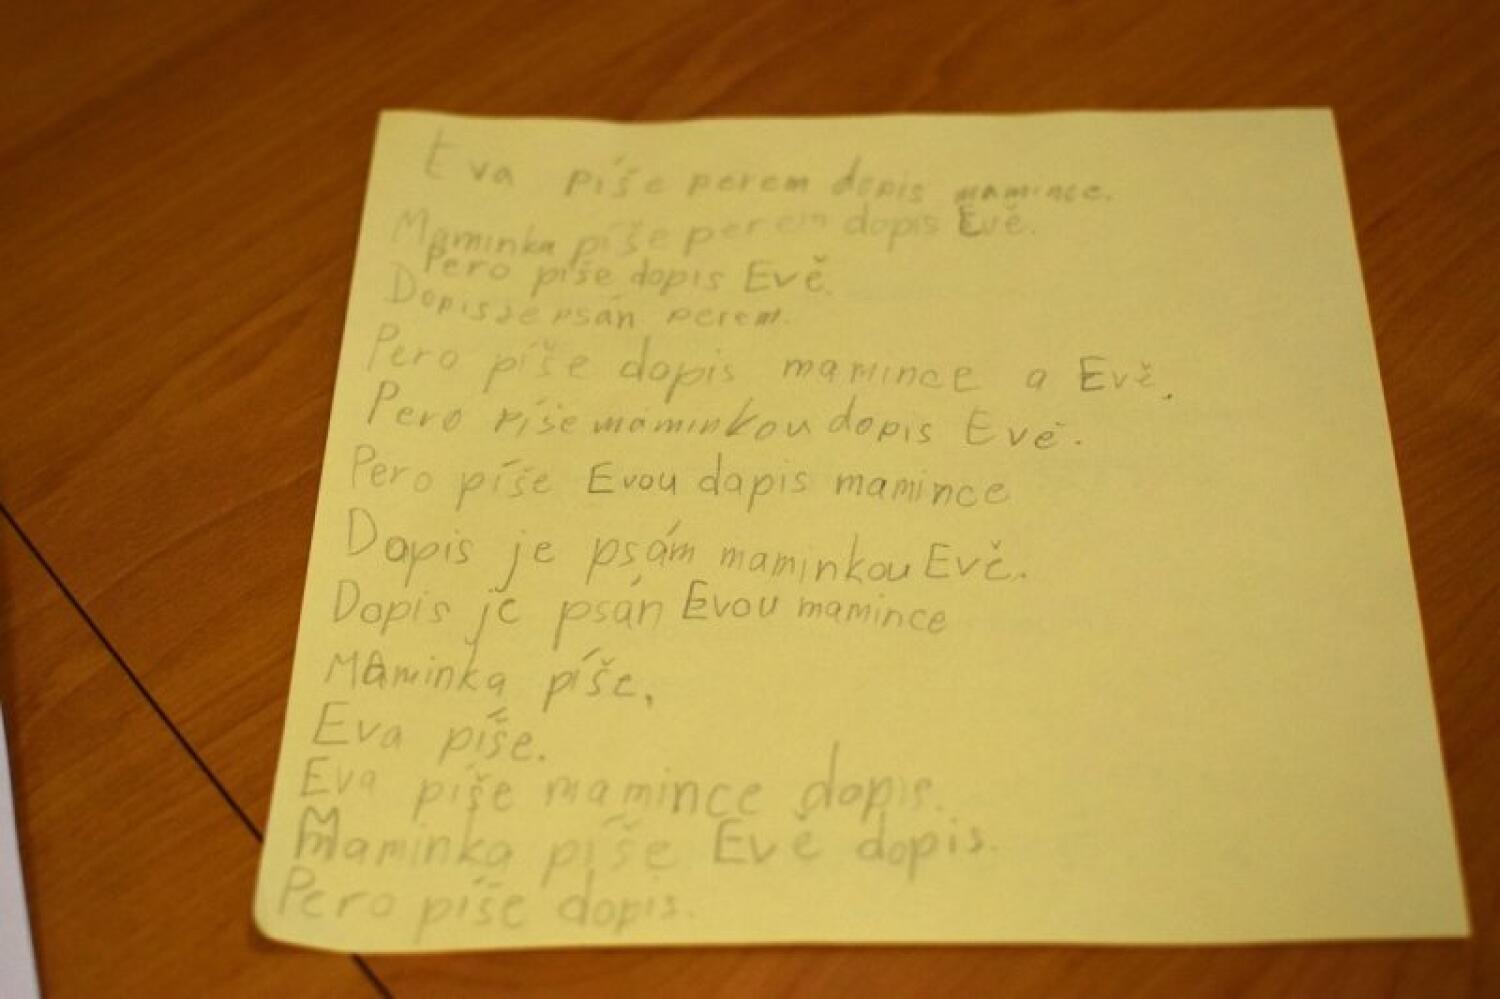 Eva píše perem dopis mamince.
Maminka píše perem dopis Evě.
Pero píše dopis Evě.
Dopis je psán perem.
Pero píše dopis mamince a Evě.
Pero píše maminkou dopis Evě.
Pero píše Evou dapis mamince
Dopis je psám maminkou Evě.
Dopis je psán Evou mamince
Maminka píše.
Eva píše.
Eva píše mamince dopis.
Maminka píše Evě dopis.
Pero píše dopis.